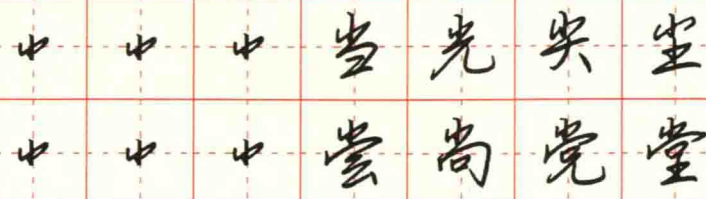 ⺌ ⺌ ⺌ 当 光 尖 尘
⺌ ⺌ ⺌ 尝 尚 党 堂